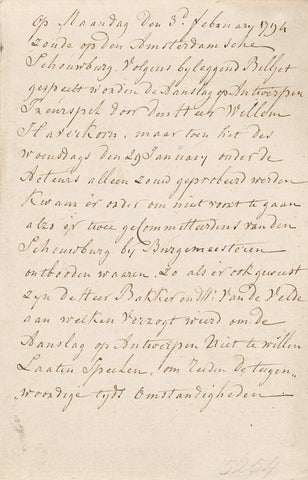 Op Maandag den 3.e february 1794
zoude op den Amsterdamsche
Schouwburg, Volgens byleggend Billjet
gespeelt worden de Aanslag op Antwerpen
Treurspel door den Heer Willem
Haverkorn, maar toen het des
woendags den 29 January onder de
Acteurs alleen zoud geprobeerd werden
kwam er order om niet voort te gaan
alzo er twee gecommitteerdens van den
Schouwburg by Burgemeesteren
ontbooden waaren, Zo als er ook geweest
zyn de Heer Bakker en W: Van de Velde
aan welken Verzogt wierd om de
Aanslag op Antwerpen Niet te willen
Laaten Speelen, om Reeden de teegen-
woordige tydt Omstandigheeden
5254